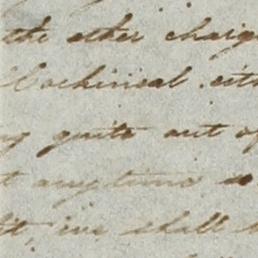 the other charg
Cochineal eit
ng quite out of
t any time
lit, we shall